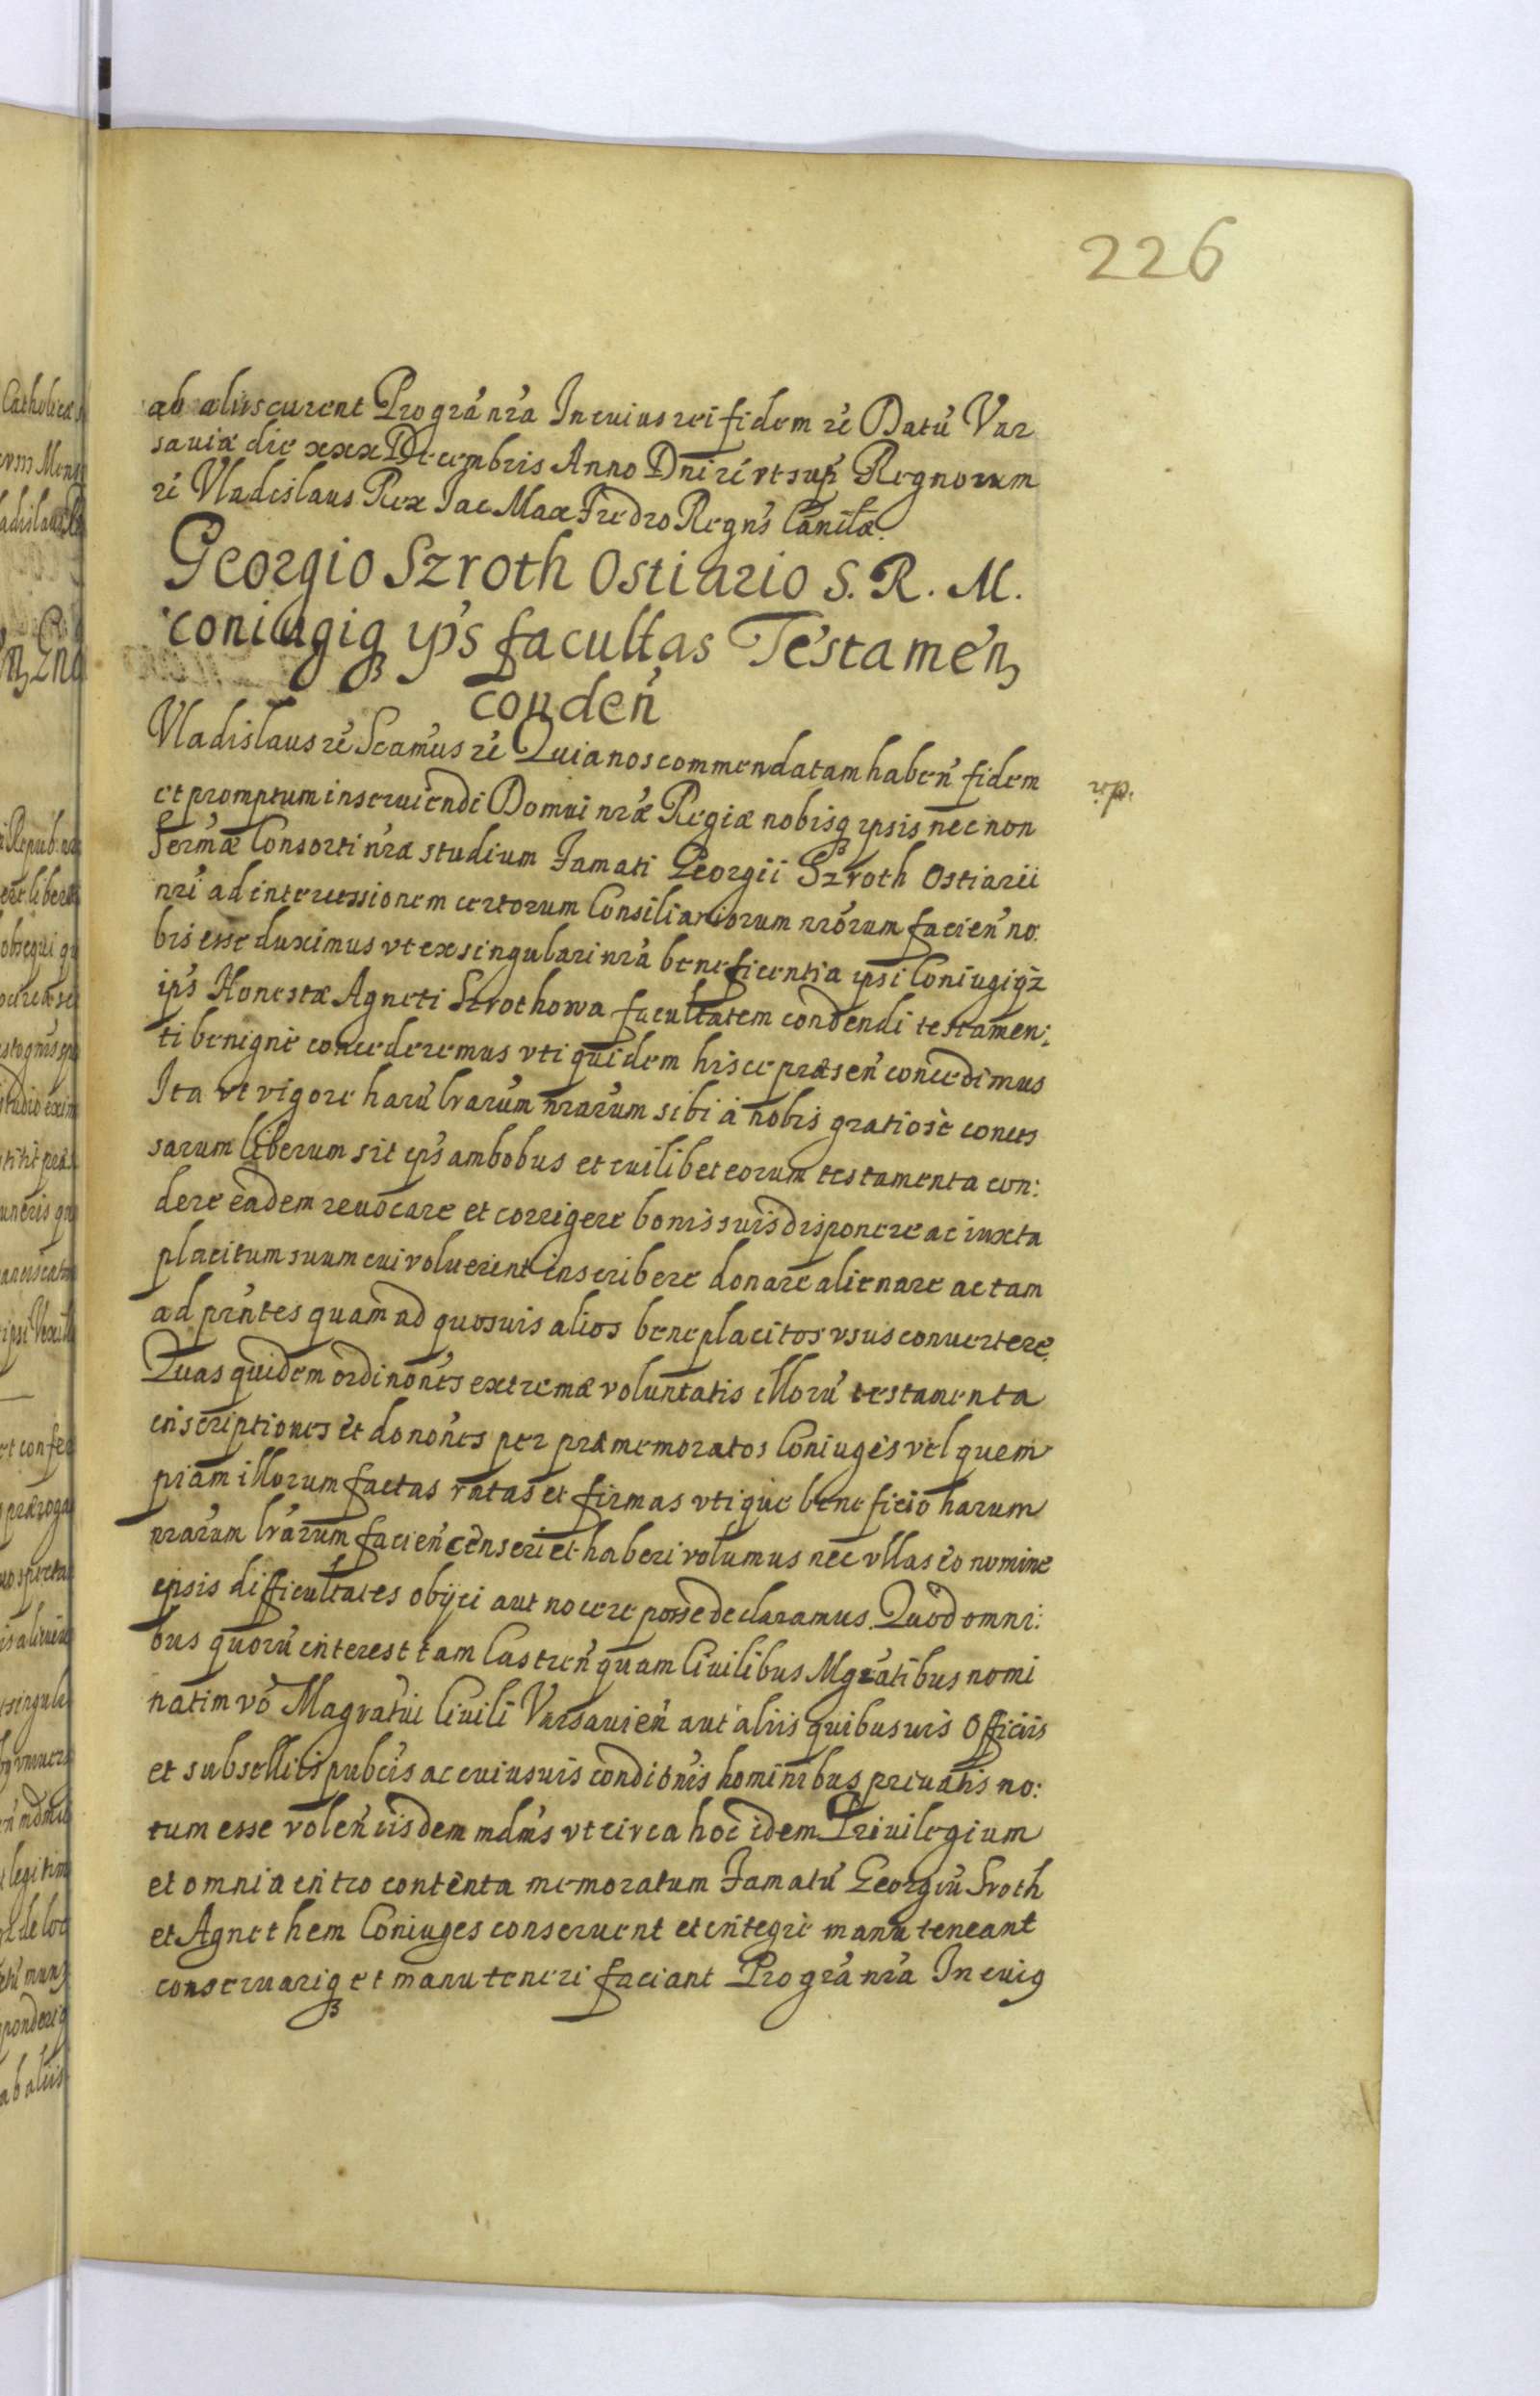 226
ab aliis curent Pro gra͠ nr͠a In cuius rei fidem zc̃ Datu͠ Var
saviæ die xxx Decembris Anno Dni zc̃ vt supr̃ Regnorum
zc̃ Vladislaus Rex Jac Max Fredro Regn͠s
Georgio Szroth Ostiario S. R. M.
coniugiqꝫ yp͠s facultas Testamen͠
conden͠
Vladislaus zc̃ zc̃ Quia nos commendatam haben͠ fidem
et promptum inserviendi Domui nr͠æ Regiæ nobisqꝫ ipsis nec non
Serm͠æ Consorti nr͠æ studium Famati Georgii Szroth Ostiarii
nr͠i ad intercessionem certorum Consiliariorum nr͠orum facien͠ no:
bis esse duximus vt ex singulari nr͠a beneficentia ipsi Coniugiqꝫ
ip͠s Honestæ Agneti Szrothowa facultatem condendi testamen:
ti benignè concederemus vti quidem hisce præsen͠ concedimus
Ita vt vigore haru͠ lr͠arum nr͠arum sibi à nobis gratiosè conces
sarum liberum sit ip͠s ambobus et cuilibet eorum testamenta con:
dere eadem revocare et corrigere bonis suis disponere ac iuxta
placitum suum cui voluerint inscribere donare alienare ac tam
ad pr͠ntes quam ad quosvis alios beneplacitos vsus convertere.
Quas quidem ordinon͠es extremæ voluntatis illoru͠ testamenta
inscriptiones et donon͠es per præmemoratos Coniuges vel quem
piam illorum factas ratas et firmas vtique beneficio harum
nr͠arum lr͠arum facien͠ censeri et haberi volumus nec vllas eo nomine
ipsis difficultates obijci aut nocere posse declaramus. Quod omni:
bus quoru͠ interest tam Castren͠ quam Civilibus Mgr͠atibus nomi
natim vo͠ Magratui Civili Varsavien͠ aut aliis quibusvis Officiis
et subselliis pub͠cis ac cuiusvis condition͠is hominibus privatis no:
tum esse volen͠ iisdem md͠ms vt circa hoc idem Privilegium
et omnia in tro contenta memoratum Famatu͠ Georgiu͠ Sroth
et Agnethem Coniuges conservent et integrè manu teneant
conservariqꝫ et manu teneri faciant Pro gra͠ nr͠a In cuiꝯ